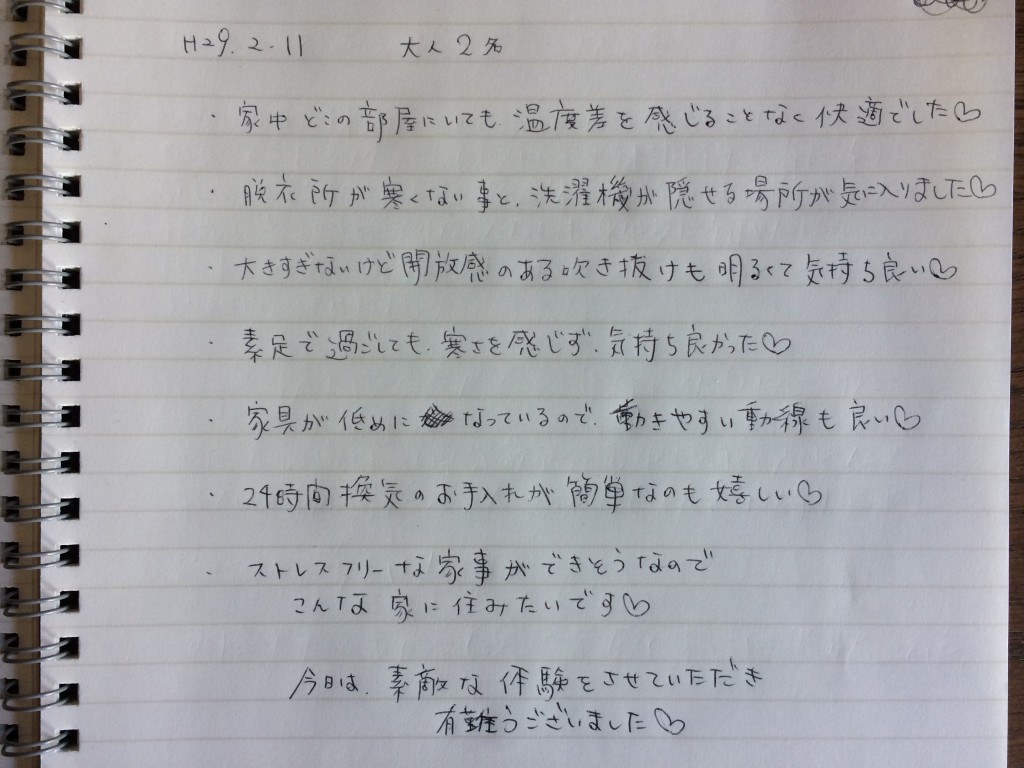 H29.2.11 大人2名
・家中どこの部屋にいても、温度差を感じることなく快適でした♡
・脱衣所が寒くない事と、洗濯機が隠せる場所が気に入りました♡
・大きすぎないけど開放感のある吹き抜けも明るくて気持ち良い♡
・素足で過ごしても、寒さを感じず、気持ち良かった♡
・家具が低めになっているので、動きやすい動線も良い♡
・24時間換気のお手入れが簡単なのも嬉しい♡
・ストレスフリーな家事ができそうなので
こんな家に住みたいです♡
今日は、素敵な体験をさせていただき
有難うございました♡